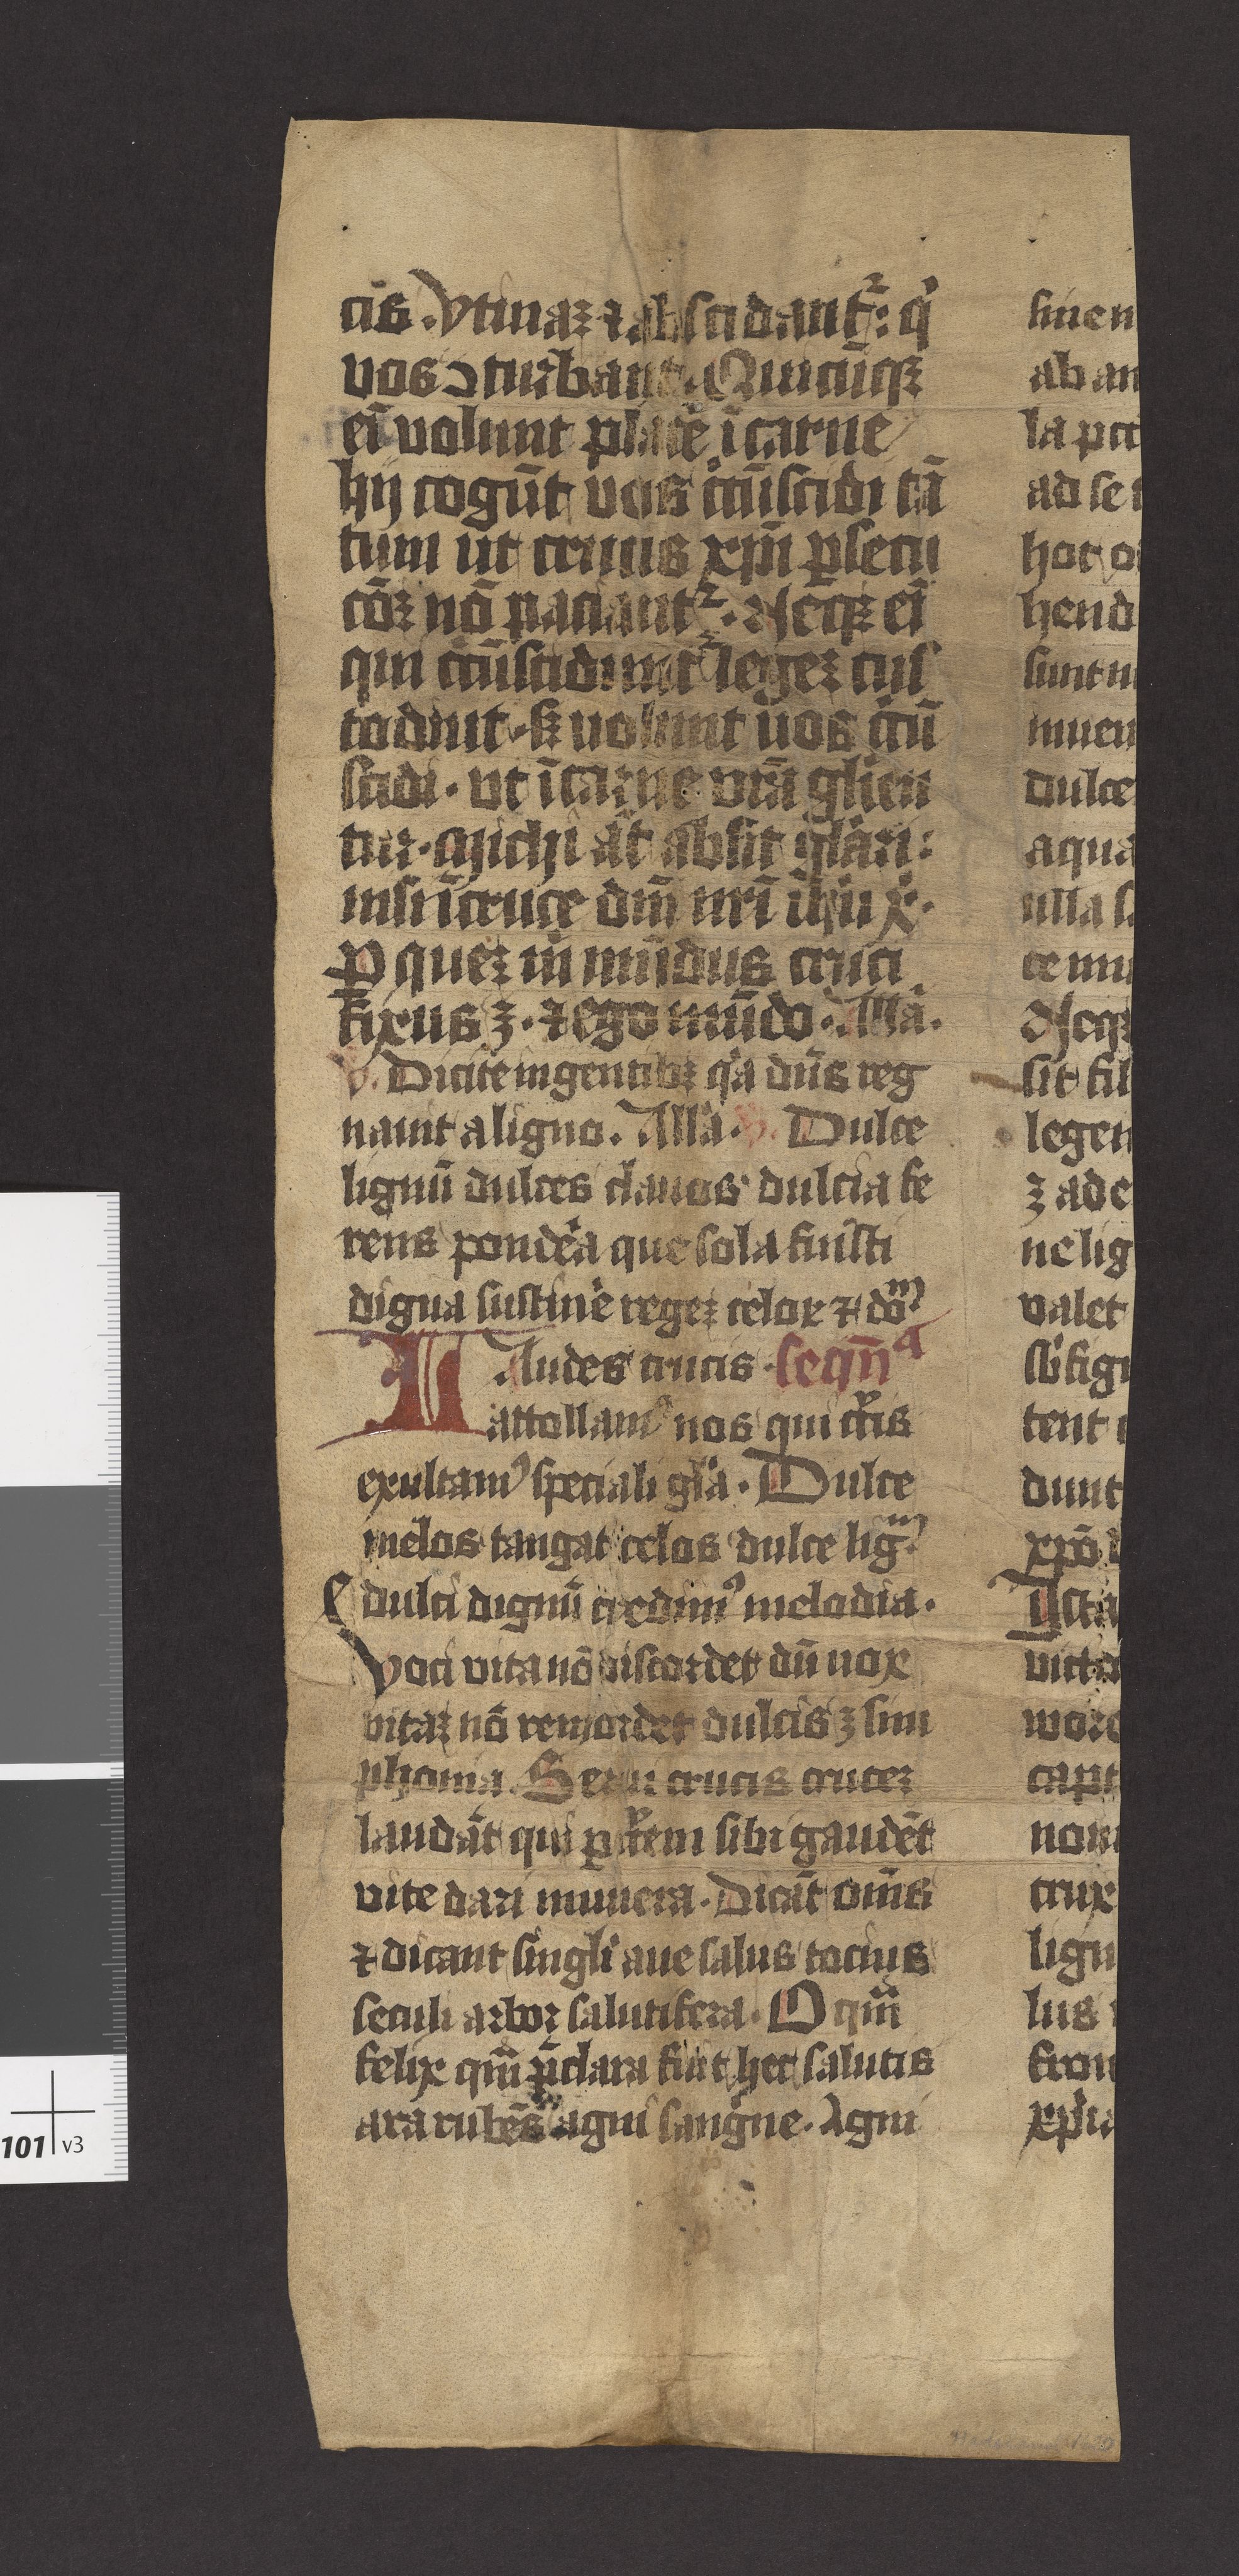 cis. Vtinaꝫ ⁊ abscidantᷣ: qͥ
vos ↄturbant. Quicūqꝫ
eī volunt place᷑ ī carne
hij cogūt vos c̄cūscidi tā
tum ut crucis xp̄i ꝑsecu
cōꝫ nō paciantᷣ. Neqꝫ eī
qui c̄cūscidunt᷑ legeꝫ cus
todiut. sꝫ volunt uos c̄cū
scidi. vt ī carne vr̄a glīen
tur. Michi āt absit glāri:
nisi ī cruce dn̄i nr̄i ih̄u xͥ.
ꝑ queꝫ m̄ mūdus cruci
fixus ꝫ. ⁊ ego mūdo. Allā.
v̄. Dicite in gentibꝫ qͥa dn̄s reg
nauit a ligno. Allā. v̄. Dulce
lignū dulces clauos dulcia fe
rens pondēa que sola fuisti
digna sustinē regeꝫ celoꝝ ⁊ doᷠ᷑
Laudes crucis. seqn̄ᵃ
attollamꝰ nos qui cͣcis
exultamꝰ speciali glͥa. Dulce
melos tangat celos dulce ligᷠ᷑
dulci dignū credimꝰ melodia.
Voci vita nō discordet dū uox
vitaꝫ nō remordet dulcis ꝫ sim
phonia. Serui crucis cruceꝫ
laudāt qui ꝑ cͣcem sibi gaudēt
vite dari munera. Dicāt om̄s
⁊ dicant singlī aue salus tocius
seculi arbor salutifera. O qm̄
felix qm̄ p̄clara fuit hec salutis
ara rubēs agni sangͥne. Agni
siue n
ab an
la pec
ad se
hoc o
hend
sunt m
inuen
dulce
aqua
ulla s
ce mu
Neqꝫ
sit fil
legen
ꝫ ad e
ne lig
valet
sb̄ figu
tent
dunt
xp̄o
Ista
victo
word
capt
non
crux
lign
lus
fron
xp̄ia